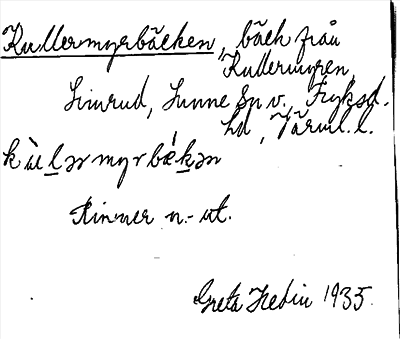 Kullermyrbäcken, bäck från
Kullermyren,
Simrud, Sunne sn v., Fryksd.
hd, Värml. l.
Rinner n.-ut.
Greta Hedin 1935.